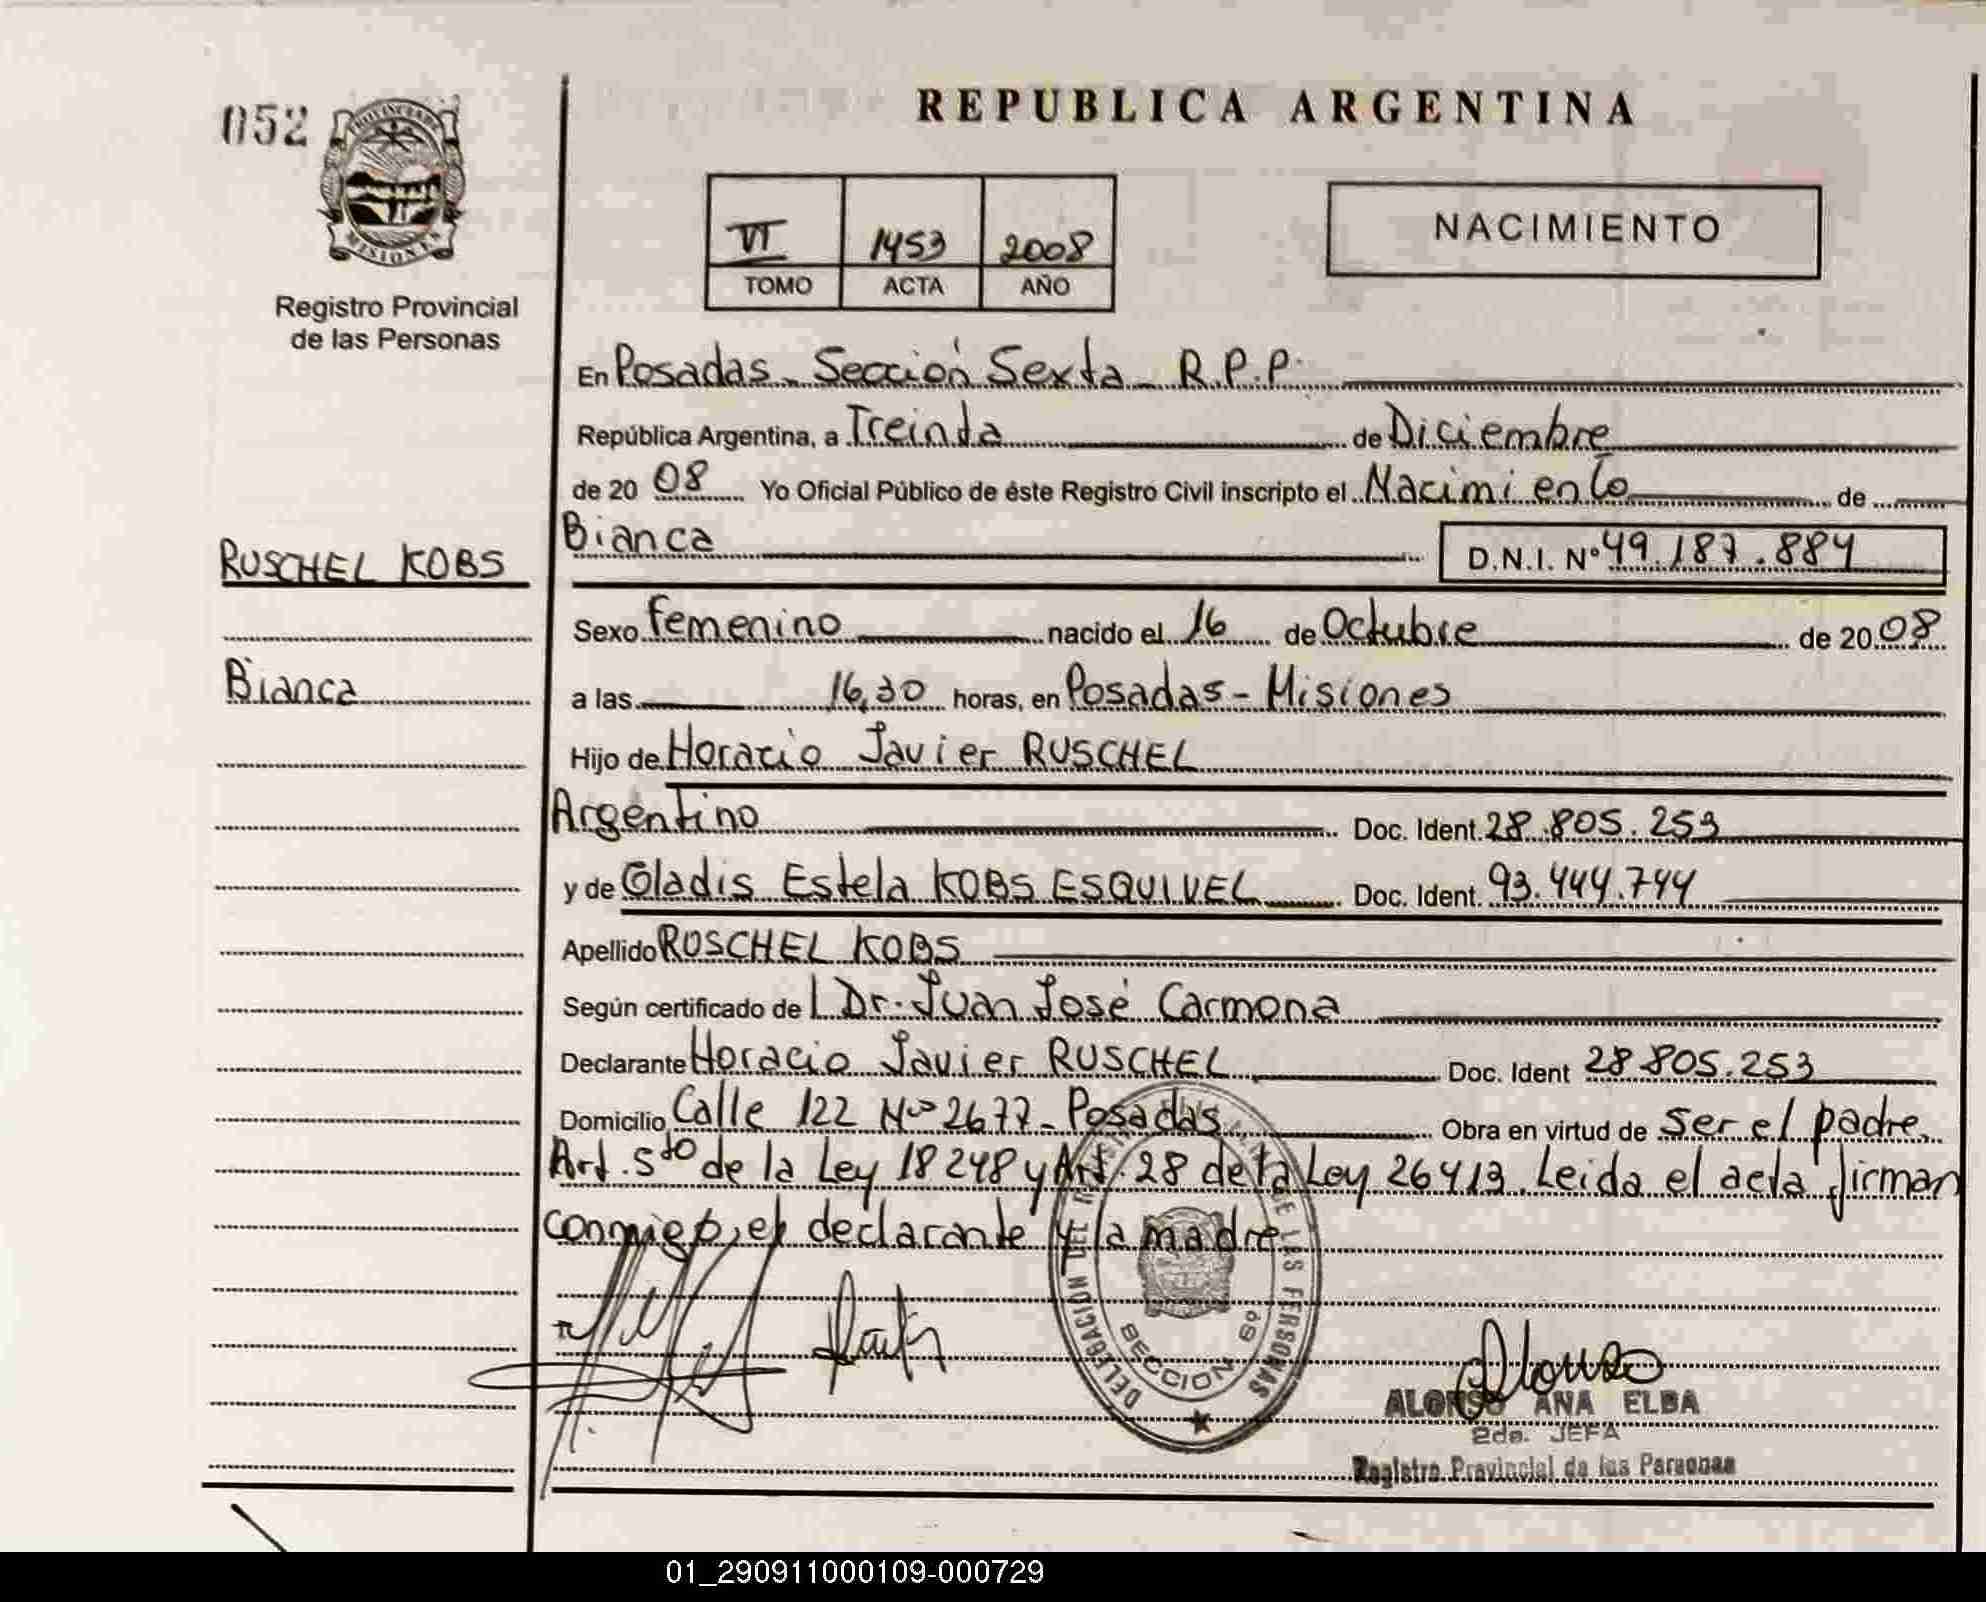 REPUBLICA ARGENTINA
052
PROVINCIA DE
MISIONES
Registro Provincial
de las Personas
VI 1453 2008
TOMO ACTA AÑO
NACIMIENTO
En Posadas - Sección Sexta - R.P.P.
República Argentina, a Treinta de Diciembre
de 20 08 Yo Oficial Público de éste Registro Civil inscripto el Nacimiento de
RUSCHEL KOBS
Bianca D.N.I. Nº 49.187.884
Sexo Femenino nacido el 16 de Octubre de 20 08
Bianca
a las 16,30 horas, en Posadas - Misiones
Hijo de Horacio Javier RUSCHEL
Argentino Doc. Ident. 28.805.253
y de Gladis Estela KOBS ESQUIVEL Doc. Ident. 93.444.744
Apellido RUSCHEL KOBS
Según certificado de l Dr. Juan José Carmona
Declarante Horacio Javier RUSCHEL Doc. Ident 28.805.253
Domicilio Calle 122 Nº 2677 - Posadas Obra en virtud de ser el padre.
Art. 5to de la Ley 18248 y Art. 28 de la Ley 26413. Leida el acta firman
conmigo, el declarante y la madre
DELEGACION DE LAS PERSONAS
SECCION 6º
Alonso
ALONSO ANA ELBA
2da. JEFA
Registro Provincial de las Personas
01_290911000109-000729